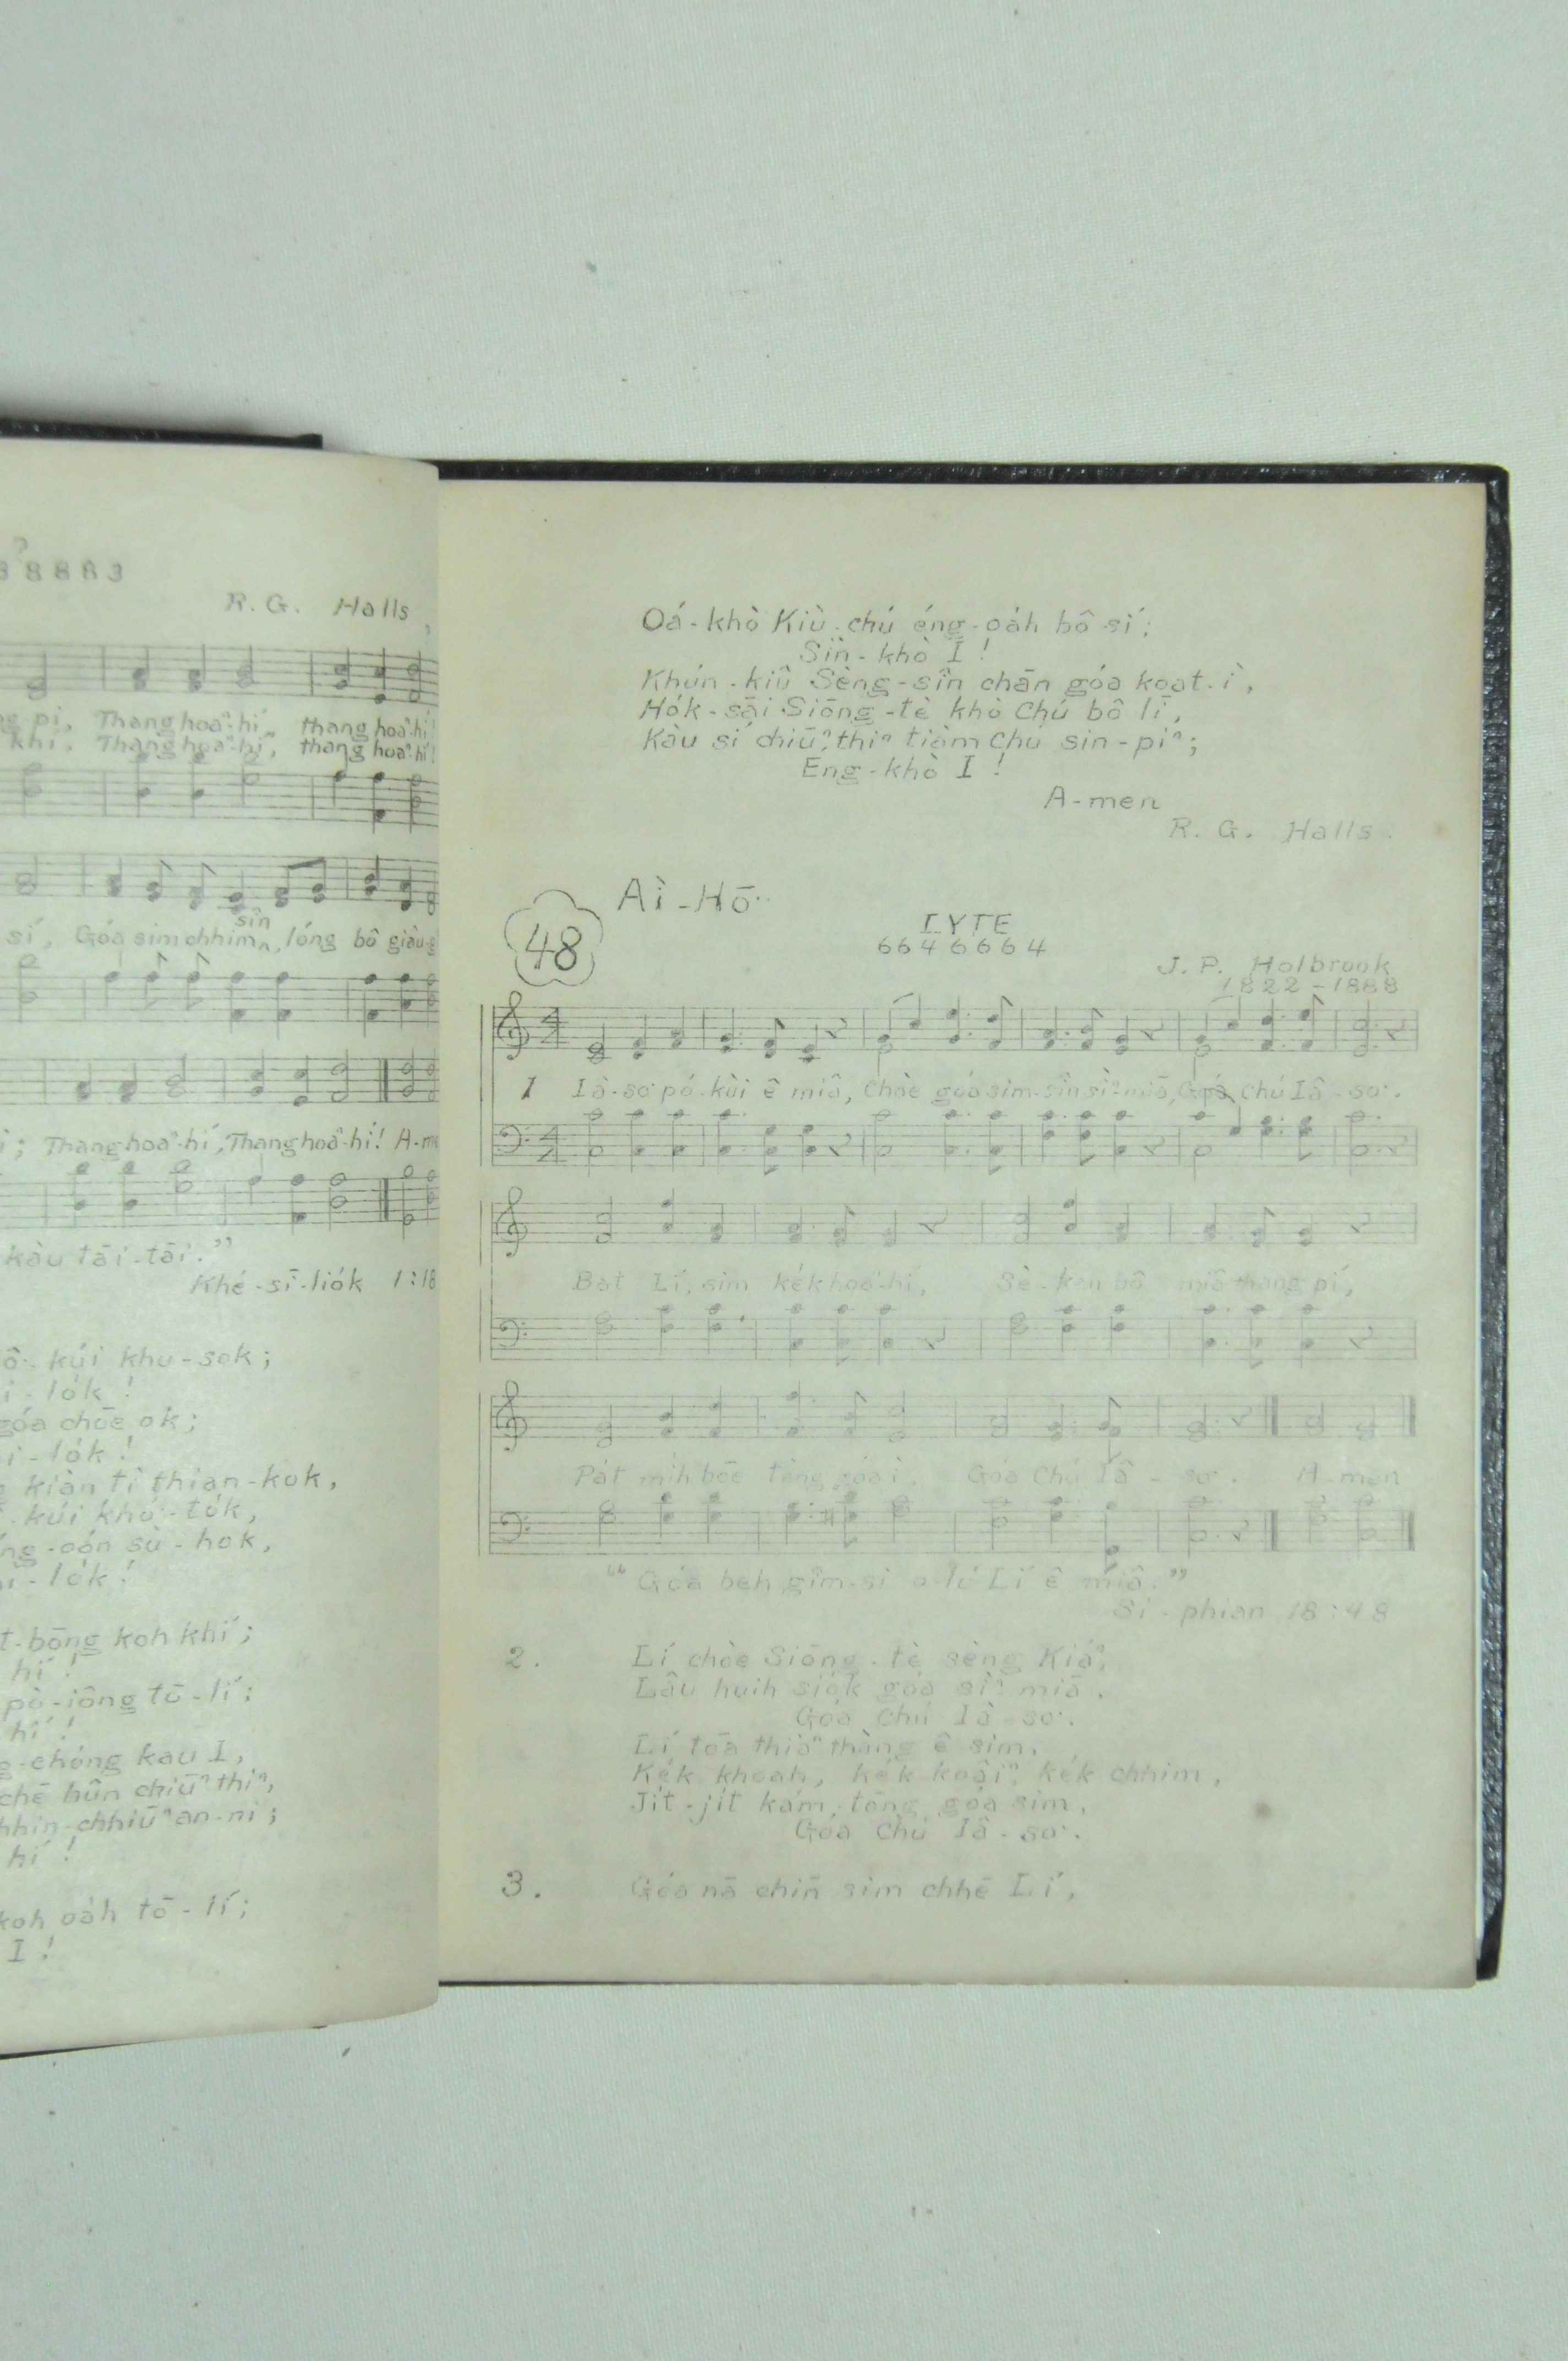 38883
R. G. Halls
pi, Thang hoaⁿ-hí, thang hoaⁿ-hí!
khì. Thang hoaⁿ-hí, thang hoaⁿ-hí!
sí, Góa sim chhim sîn, lóng bô giâu-g
; Thang hoaⁿ-hí, Thang hoaⁿ-hí! A-me
kàu tāi-tāi."
Khé-sī-lio̍k 1:18
kúi khu-sok;
i-lo̍k!
góa chōe ok;
i-lo̍k!
kiàn tì thian-kok,
kúi khó͘-to̍k,
ng-oán sù-hok,
i-lo̍k!
t-bōng koh khí;
hí!
pò-iông tō-lí;
hí!
g-chóng kau I,
chē hûn chiūⁿ thiⁿ,
hhin-chhiūⁿ an-ni;
hí!
koh oa̍h tō-lí;
I!
Oá-khò Kiù-chú éng-oa̍h bô sí;
Sìn-khò I!
Khún-kiû Sèng-sîn chān góa koat-ì,
Ho̍k-sāi Siōng-tè khò Chú bô lī,
Kàu sí chiūⁿ thiⁿ tiàm Chú sin-piⁿ;
Eng-khò I!
A-men
R. G. Halls.
48
Ài-Hō͘
LYTE
6 6 4 6 6 6 4
J. P. Holbrook
1822-1888
1 Iâ-so͘ pó-kùi ê miâ, Chòe góa sim-sîn sìⁿ-miā, Góa Chú Iâ-so͘.
Bat Lí, sim ke̍k hoaⁿ-hí, Sè-kan bô miâ thang pí,
Pa̍t mi̍h bōe tèng góa ì, Góa Chú Iâ-so͘. A-men
"Góa beh gîm-si o-ló Lí ê miâ."
Si-phian 18:48
2. Lí chòe Siōng-tè sèng Kiáⁿ,
Lâu huih sio̍k góa sìⁿ miā,
Góa Chú Iâ-so͘.
Lí tōa thiàⁿ thàng ê sim,
Ke̍k khoah, ke̍k koâiⁿ, ke̍k chhim,
Ji̍t-ji̍t kám-tōng góa sim,
Góa Chú Iâ-so͘.
3. Góa nā chīn sim chhē Lí,